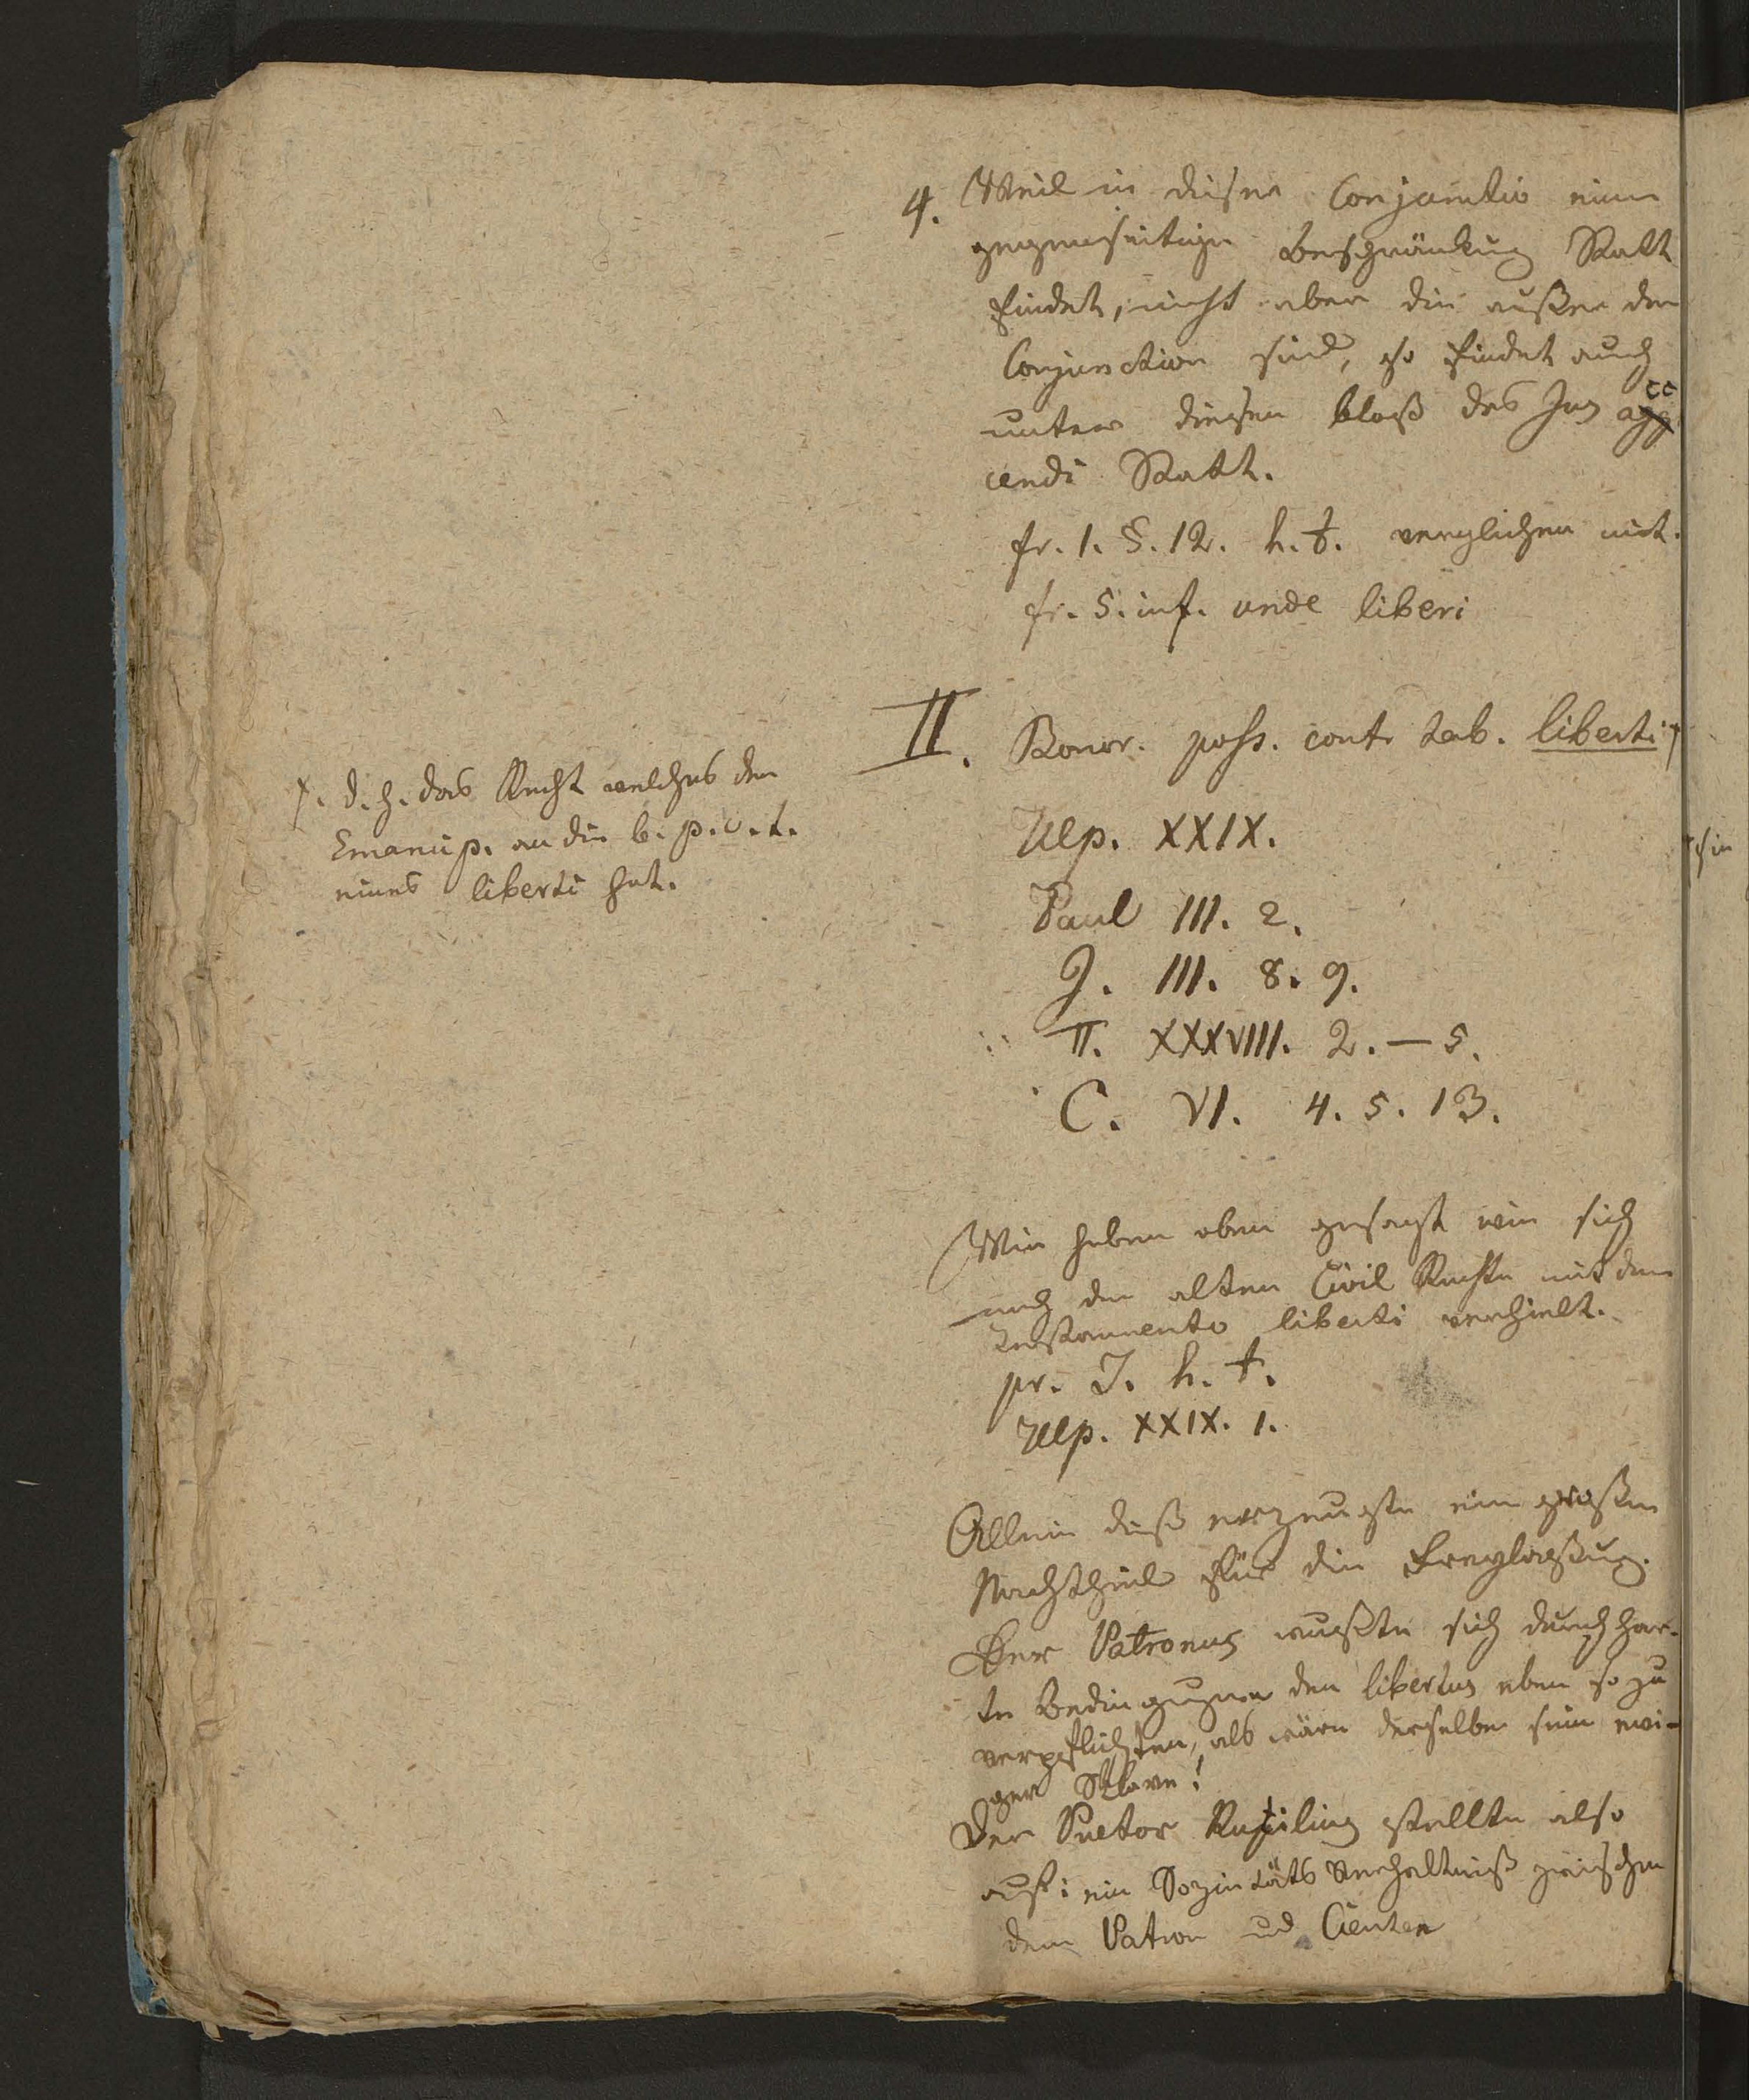 4. Weil in dieser Conjunctio eine
gegenseitige Beschränkung Statt
findet, nicht aber die außer der
Conjunction sind, so findet auch
unter diesen bloß das Jus acc
cendi Statt.
fr. 1. §. 12. h. t. verglichen mit.
fr. 5. inf. unde liberi
II. Bonor. poss. cont. tab. liberti +
+. d. h. das Recht welches der
Emancip. an die b. p. c. t.
eines liberti hat.
Ulp. XXIX.
Paul III. 2.
J. III. 8. 9.
π. XXXVIII. 2. — 5.
C. VI. 4. 5. 13.
Wir haben oben gesagt wie sich
nach dem alten Civil Rechte mit dem
Testamento liberti verhielt.
pr. J. h. t.
Ulp. XXIX. 1.
Allein dieß erzeugte einen großen
Nachtheil für die Freylaßung.
Der Patronus wußte sich durch har-
te Bedingungen den libertus eben so zu
verpflichten, als wäre derselbe sein ewi-
ger Sklave!
Der Praetor Rutilius stellte also
auf: ein Sozietäts Verhältniß zwischen
dem Patron ud Clienten